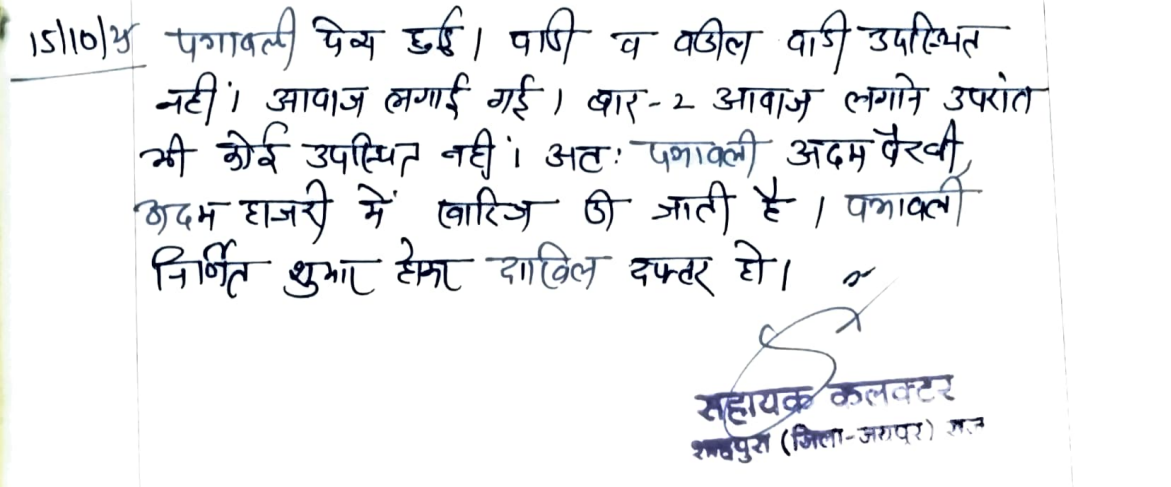 15/10/25 पत्रावली पेश हुई। वादी व वकील वादी उपस्थित
नहीं। आवाज लगाई गई। बार-2 आवाज लगाने उपरांत
भी कोई उपस्थित नहीं। अतः पत्रावली अदम पैरवी,
अदम हाजरी में खारिज की जाती है। पत्रावली
निर्णित शुमार होकर दाखिल दफ्तर हो।
सहायक कलक्टर
शाहपुरा (जिला-जयपुर) राज